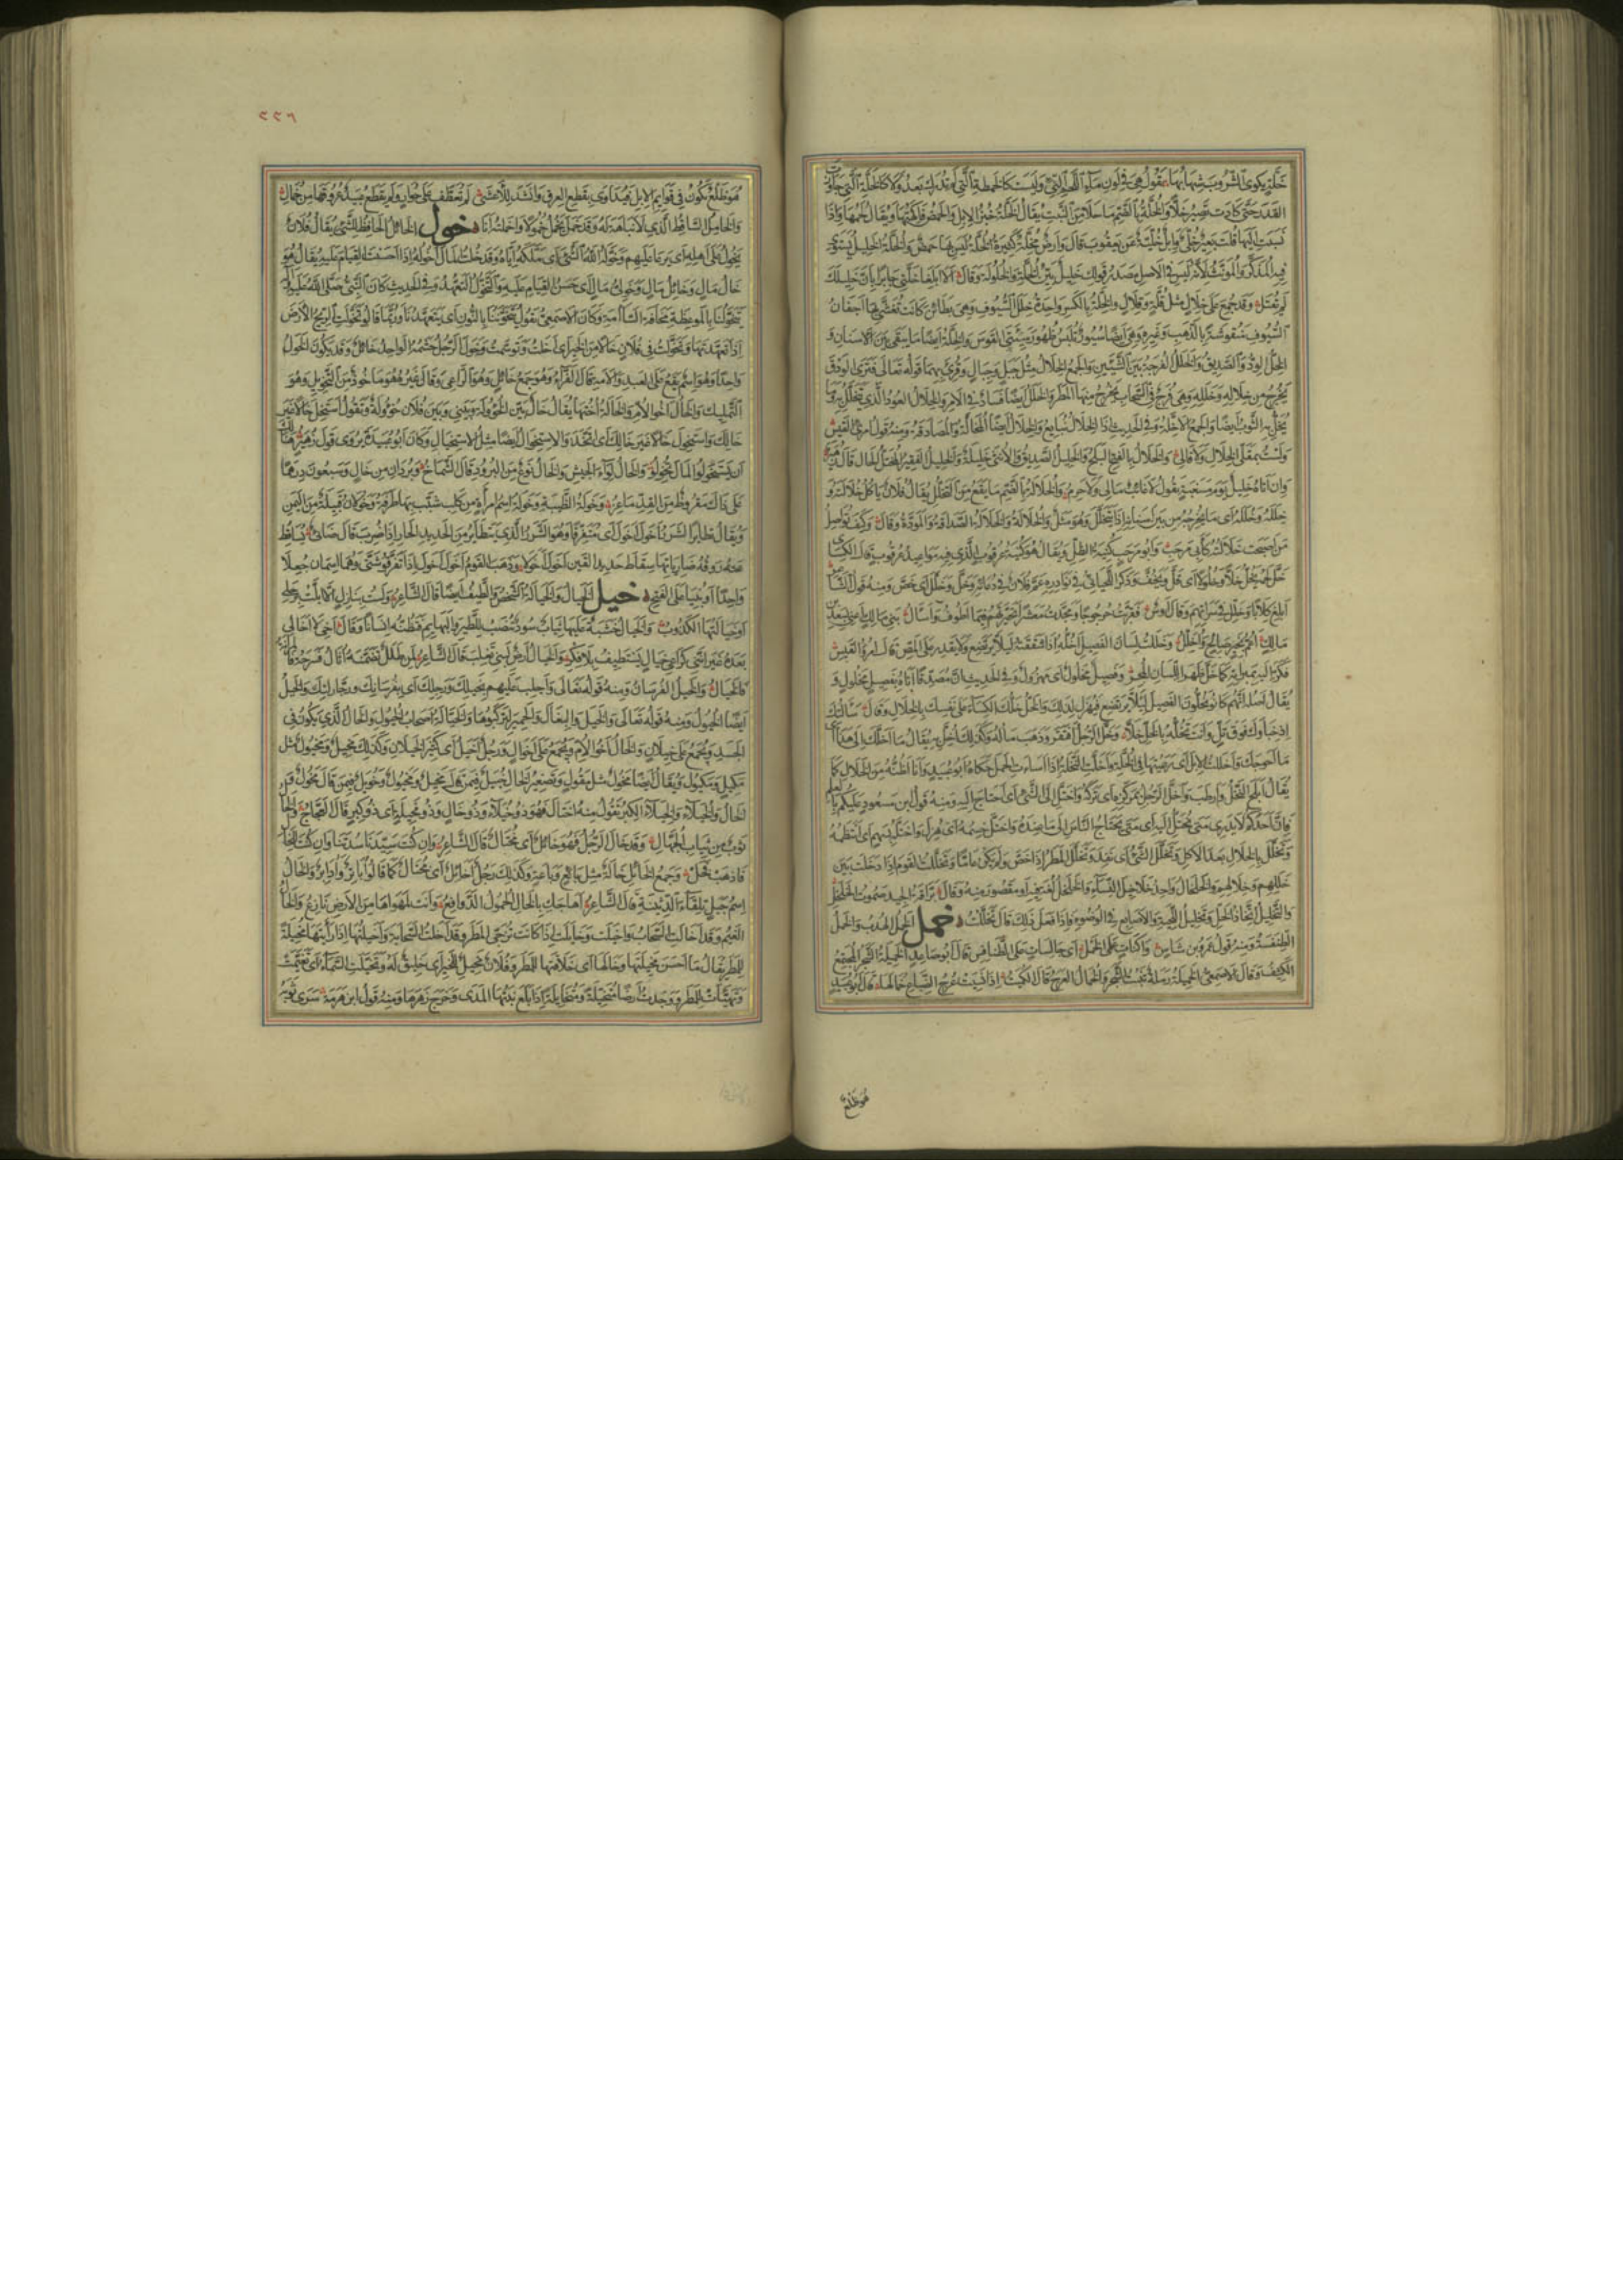 خلة يكوى الشروب شهابها يقول هي في لون ماء اللحم النيء وليست كالخمطة التي لم تدرك بعد ولا كالخلة التي جاوزت
القدر حتى كادت تصير خلا والخلة بالضم ما حلا من النبت يقال الخلة خبز الابل والحمض فاكهتها ويقال لحمها واذا
نسبت اليها قلت بعير خلي وابل خلية عن يعقوب قال وارض مخلة كثيرة الخلة ليس بها حمض والخلة الخليل يستوي
فيه المذكر والمؤنث لانه ليس في الاصل مصدر قولك خليل بين الخلة والخلولة وقال الا ابلغا خلتي جابرا بان خليلك
لم يقتل وقد جمع على خلال مثل قلة وقلال والخلة بالكسر واحدة خلل السيوف وهي بطائن كانت تغشى بها اجفان
السيوف منقوشة بالذهب وغيره وهي ايضا سيور تلبس ظهور سيتي القوس والخلة ايضا ما يبقى بين الاسنان و
الخل الود والصديق والخلل الفرجة بين الشيئين والجمع الخلال مثل جبل وجبال وقرئ بهما قوله تعالى فترى الودق
يخرج من خلاله وخلله وهي فرج في السحاب يخرج منها المطر والخلل ايضا فساد في الامر والخلال العود الذي يتخلل به وما
يخل به الثوب ايضا والجمع الاخلة وفي الحديث اذا الخلال نبايع والخلال ايضا المخالة والمصادقة ومنه قول امرئ القيس
ولست بمقلي الخلال ولا قالي والخلال بالفتح البلح والخليل الصديق والانثى خليلة والخليل الفقير المختل الحال قال زهير
وان اتاه خليل يوم مسغبة يقول لا غائب مالي ولا حرم والخلالة بالضم ما يقع من التخلل يقال فلان ياكل خلالته و
خلله وخلله اي ما يخرجه من بين اسنانه اذا تخلل وهو مثل والخلالة والخلالة الصداقة والمودة وقال وكيف تواصل
من اصبحت خلالته كابي مرحب وابو مرحب كنية الظل ويقال هو كنية عرقوب الذي فيه مواعيد عرقوب قال الكسائي
خل لحمه يخل خلا وخلولا اي قل ونحف وذكر اللحياني في نوادره عم فلان في دعائه وخل وخلل اي خص ومنه قول الشاعر
ابلغ كلابا وخلل في سراتهم وقال اوس فقربت حرجوجا ومجدت معشرا تخيرتهم فيما اطوف واسال بني مالك اعني بسعد بن
مالك اعم بخير صالح واخلل وخللت لسان الفصيل اخله اذا شققته لئلا يرتضع ولا يقدر على المص قال امرؤ القيس
فكر اليه بمبراته كما خل ظهر اللسان المجر وفصيل مخلول اي مهزول وفي الحديث ان مصدقا اتاه بفصيل مخلول و
يقال اصله انهم كانوا يخلون الفصيل لئلا يرتضع فيهزل لذلك والخل خلك الكساء على نفسك بالخلال وقال سالتك
اذ خباؤك فوق تل وانت تخله بالخل خلا وخل الرجل افتقر وذهب ماله وكذلك اخل به يقال ما اخلك الى هذا اي
ما احوجك واخللت الابل اي رعيتها في الخلة واخلت النخلة اذا اساءت الحمل حكاه ابو عبيد وانا اظنه من الخلال كما
يقال ابلح النخل وارطب واخل الرجل بمركزه اي تركه واختل الى الشيء اي احتاج اليه ومنه قول ابن مسعود عليكم بالعلم
فان احدكم لا يدري متى يختل اليه اي متى يحتاج الناس الى ما عنده واختل جسمه اي هزل واختله بسهم اي انتظمه
وتخلل بالخلال بعد الاكل وتخلل الشيء اي نفذ وتخلل المطر اذا خص ولم يكن عاما وتخللت القوم اذا دخلت بين
خللهم وخلالهم والخلخال واحد خلاخيل النساء والخلخل لغة فيه او مقصور منه وقال براقة الجيد صموت الخلخل
والتخليل اتخاذ الخل وتخليل اللحية والاصابع في الوضوء فاذا فعل ذلك قال تخللت خمل الخمل الهدب والخمل
الطنفسة ومنه قول عمرو بن شاس واكنات على الخمل اي جالسات على الطنافس قال ابو صاعد الخميلة الشجر المجتمع
الكثيف وقال الاصمعي الخميلة رملة تنبت الشجر والخمال العرج قال الكميت اذا نسيت عرج الضباع خمالها قال ابو عبيد
هو ظلع
٢٢٦
هو ظلع يكون في قوائم الابل فيداوى بقطع العرق وانشد للاعشى لم تعطف على حوار ولم يقطع عبيد عروقها من خمال
والخامل الساقط الذي لا نباهة له وقد خمل يخمل خمولا واخملته انا خول الخائل الحافظ للشيء يقال فلان
يخول على اهله اي يرعى عليهم وخوله الله الشيء اي ملكه اياه وقد خلت المال اخوله اذا احسنت القيام عليه يقال هو
خال مال وخائل مال وخولي مال اي حسن القيام عليه والتخول التعهد وفي الحديث كان النبي صلى الله عليه
يتخولنا بالموعظة مخافة السآمة وكان الاصمعي يقول يتخوننا بالنون اي يتعهدنا وربما قالوا تخولت الريح الارض
اذا تعهدتها وتخولت في فلان خالا من الخير اي اخلت وتوسمت وخول الرجل حشمه الواحد خائل وقد يكون الخول
واحدا وهو اسم يقع على العبد والامة قال الفراء وهو جمع خائل وهو الراعي وقال غيره هو ماخوذ من التخويل وهو
التمليك والخال اخو الام والخالة اختها يقال خال بين الخؤولة وبيني وبين فلان خؤولة وتقول استخل خالا غير
خالك واستخول خالا غير خالك اي اتخذ والاستخوال ايضا مثل الاستخبال وكان ابو عبيدة يروي قول زهير هنالك
ان يستخولوا المال يخولوا والخال لواء الجيش والخال نوع من البرود قال الشماخ وبردان من خال وسبعون درهما
على ذاك مقروظ من القد ماعز وخولة الظبية وخولة اسم امراة من كلب شبب بها طرفة وخولان قبيلة من اليمن
ويقال تطاير الشرر اخول اخول اي متفرقا وهو الشرر الذي يتطاير من الحديد الحار اذا ضرب قال ضابئ يساقط
عنه روقه ضارياتها سقاط حديد القين اخول اخولا وذهب القوم اخول اخول اذا تفرقوا شتى وهما اسمان جعلا
واحدا وبنيا على الفتح خيل الخيال والخيالة الشخص والطيف ايضا قال الشاعر ولست بنازل الا المت برحلي
او خيالتها الكذوب والخيال خشبة عليها ثياب سود تنصب للطير والبهائم فتظنه انسانا وقال اخي لا اخا لي
بعده غير انني كراعي خيال يستطيف بلا فكر والخيال ارض لبني تغلب قال الشاعر لمن طلل تضمنه اثال فسرحة فالمرانة
فالخيال والخيل الفرسان ومنه قوله تعالى واجلب عليهم بخيلك ورجلك اي بفرسانك ورجالتك والخيل
ايضا الخيول ومنه قوله تعالى والخيل والبغال والحمير لتركبوها والخيالة اصحاب الخيول والخال الذي يكون في
الجسد ويجمع على خيلان والخال اخو الام ويجمع على اخوال ورجل اخيل اي كثير الخيلان وكذلك مخيل ومخيول مثل
مكيل ومكيول ويقال ايضا مخول مثل مقول وتصغير الخال خييل فيمن قال مخيل ومخيول وخويل فيمن قال مخول و
الخال والخيلاء والخيلاء الكبر تقول منه اختال فهو ذو خيلاء وذو خال وذو مخيلة اي ذو كبر قال العجاج والخال
ثوب من ثياب الجهال وقد خال الرجل فهو خائل اي مختال قال الشاعر وان كنت سيدنا سدتنا وان كنت للخال
فاذهب فخل وجمع الخائل خالة مثل بائع وباعة وكذلك رجل اخائل اي مختال كما قالوا اباتر وادابر والخال
اسم جبل تلقاء الدثينة قال الشاعر اهاجك بالخال الحمول الدوافع وانت لمهواها من الارض نازع والخال
الغيم وقد اخالت السحاب واخيلت وخايلت اذا كانت ترجى المطر وقد اخلت السحابة واخيلتها اذا رايتها مخيلة
للمطر يقال ما احسن مخيلتها وخالها اي خلاقتها للمطر وفلان مخيل للخير اي خليق له وتخيلت السماء اي تغيمت
وتهيات للمطر ووجدت ارضا متخيلة ومتخايلة اذا بلغ نبتها المدى وخرج زهرها ومنه قول ابن هرمة سرى ثوبه